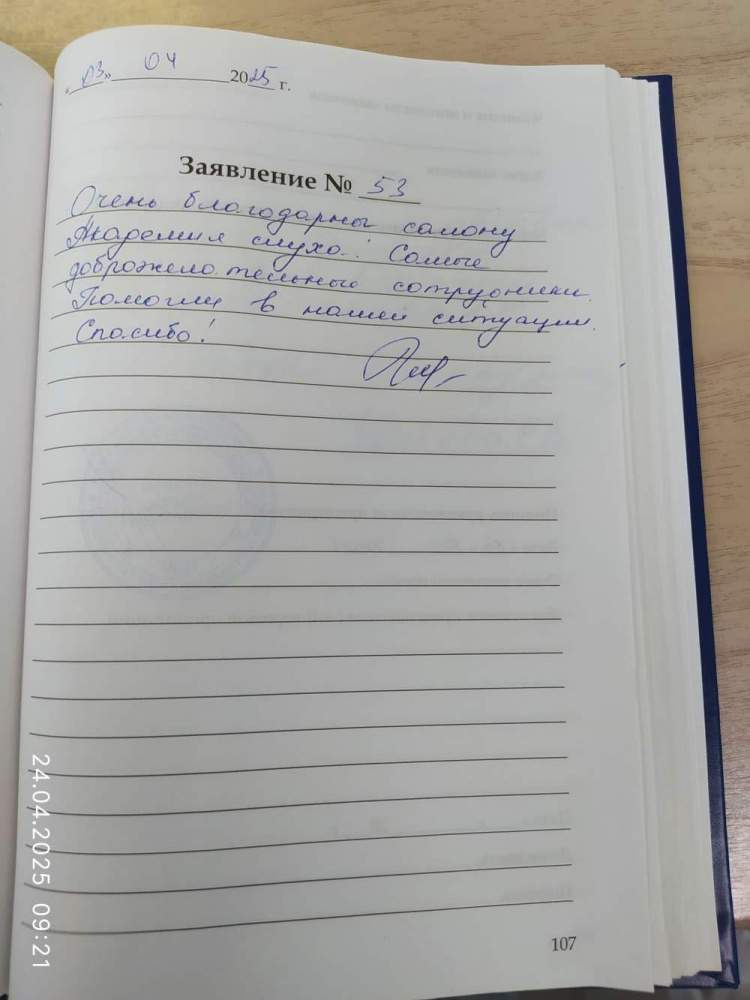 «03» 04 2025 г.
Заявление № 53
Очень благодарны салону
Академия слуха! Самые
доброжелательные сотрудники.
Помогли в нашей ситуации.
Спасибо!
107
24.04.2025 09:21